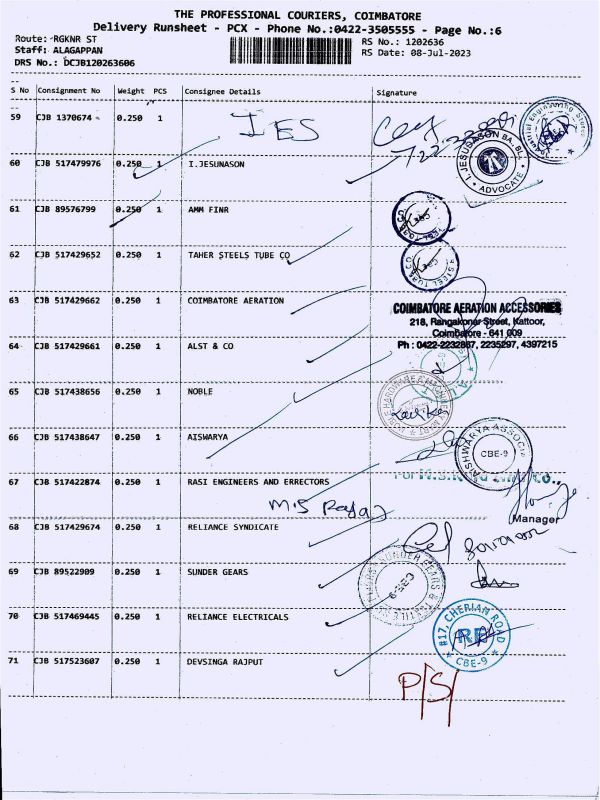 THE PROFESSIONAL COURIERS, COIMBATORE
Delivery Runsheet - PCX - Phone No.:0422-3505555 - Page No.:6
Route: RGKNR ST
RS No.: 1202636
Staff: ALAGAPPAN
RS Date: 08-Jul-2023
DRS No.: DCJB120263606
S No Consignment No Weight PCS Consignee Details Signature
59 CJB 1370674 0.250 1 IES
60 CJB 517479976 0.250 1 I.JESUNASON
I.JESUNASON BA, BL,
ADVOCATE
61 CJB 89576799 0.250 1 AMM FINR
62 CJB 517429652 0.250 1 TAHER STEELS TUBE CO
63 CJB 517429662 0.250 1 COIMBATORE AERATION
COIMBATORE AERATION ACCESSORIES
218, Rangakonar Street, Kattoor,
Coimbatore - 641 009
Ph : 0422-2232867, 2235297, 4397215
64 CJB 517429661 0.250 1 ALST & CO
65 CJB 517438656 0.250 1 NOBLE
66 CJB 517438647 0.250 1 AISWARYA
CBE-9
67 CJB 517422874 0.250 1 RASI ENGINEERS AND ERRECTORS
Manager
68 CJB 517429674 0.250 1 RELIANCE SYNDICATE
69 CJB 89522909 0.250 1 SUNDER GEARS
CBE-9
70 CJB 517469445 0.250 1 RELIANCE ELECTRICALS
#17, CHERIAN ROAD
RE
CBE-9
71 CJB 517523607 0.250 1 DEVSINGA RAJPUT
P/S/